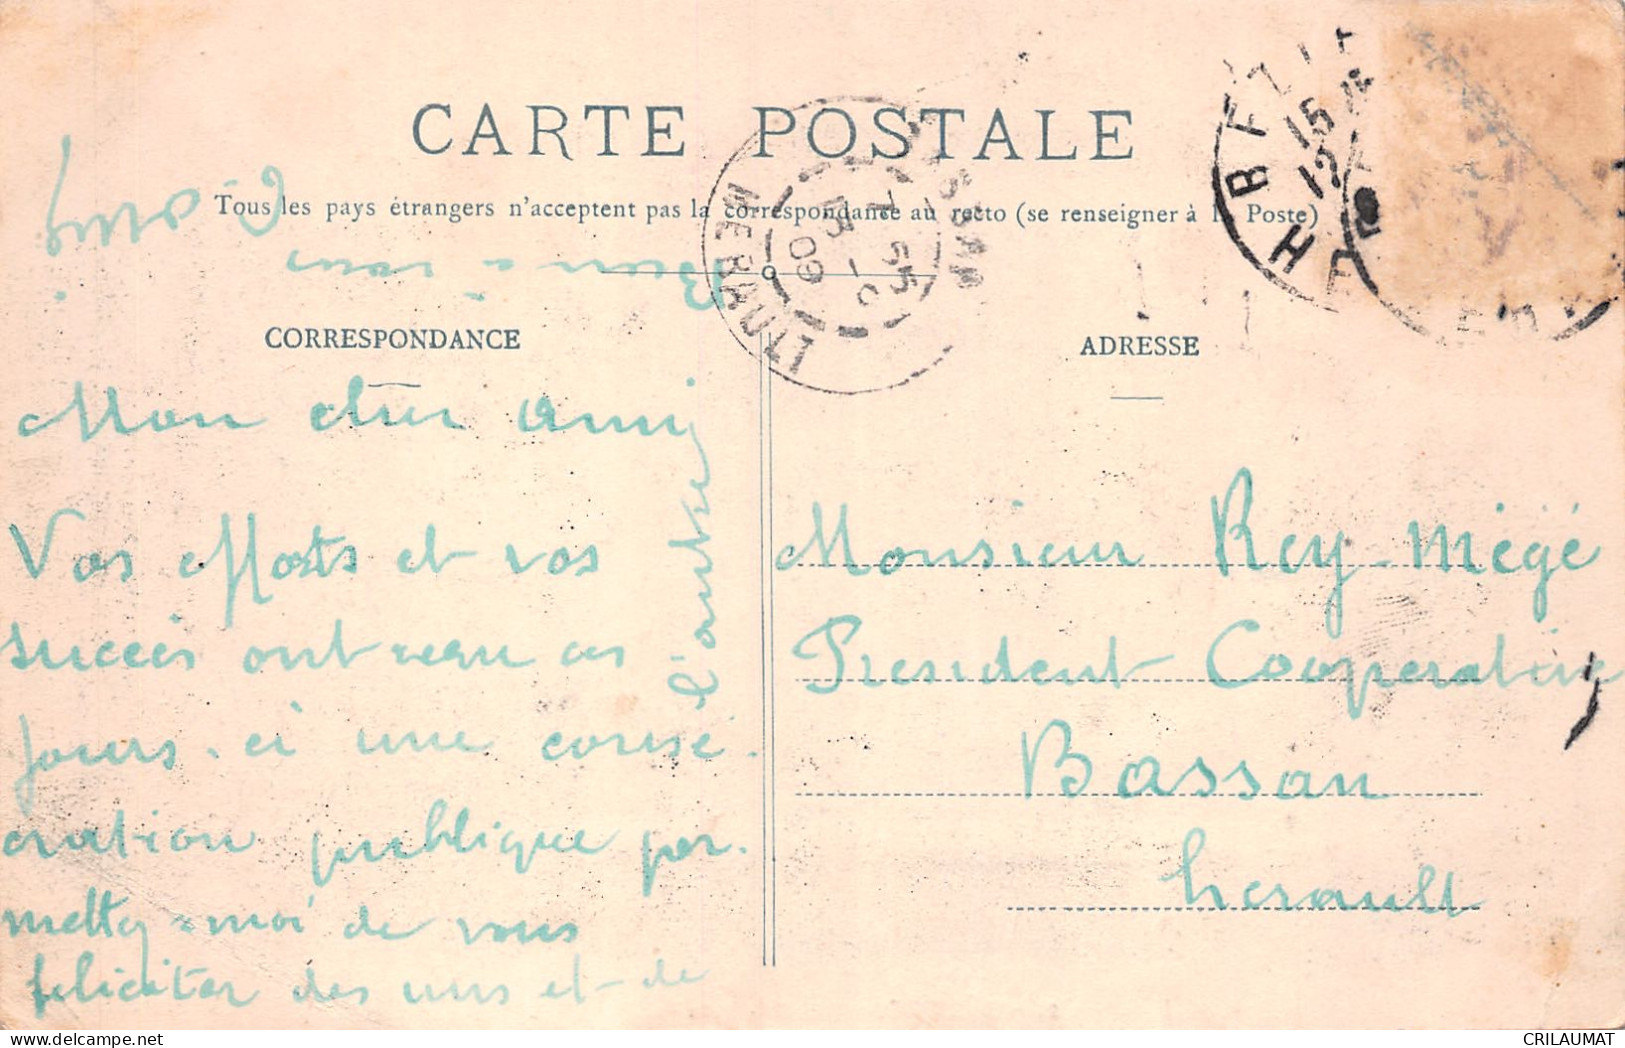 CARTE POSTALE
Tous les pays étrangers n'acceptent pas la correspondance au recto (se renseigner à la Poste)
CORRESPONDANCE
ADRESSE
Mon cher ami
Vos efforts et vos
succès ont reçu ces
jours-ci une consé-
cration publique per-
mettez-moi de vous
féliciter des uns et de
l'autre
Bien à vous
Monsieur Rey-Mégé
President Cooperative
Bassan
herault
BASSAN
HERAULT
7 55
13 -9
09
BEZIE
15
12
H
CRILAUMAT